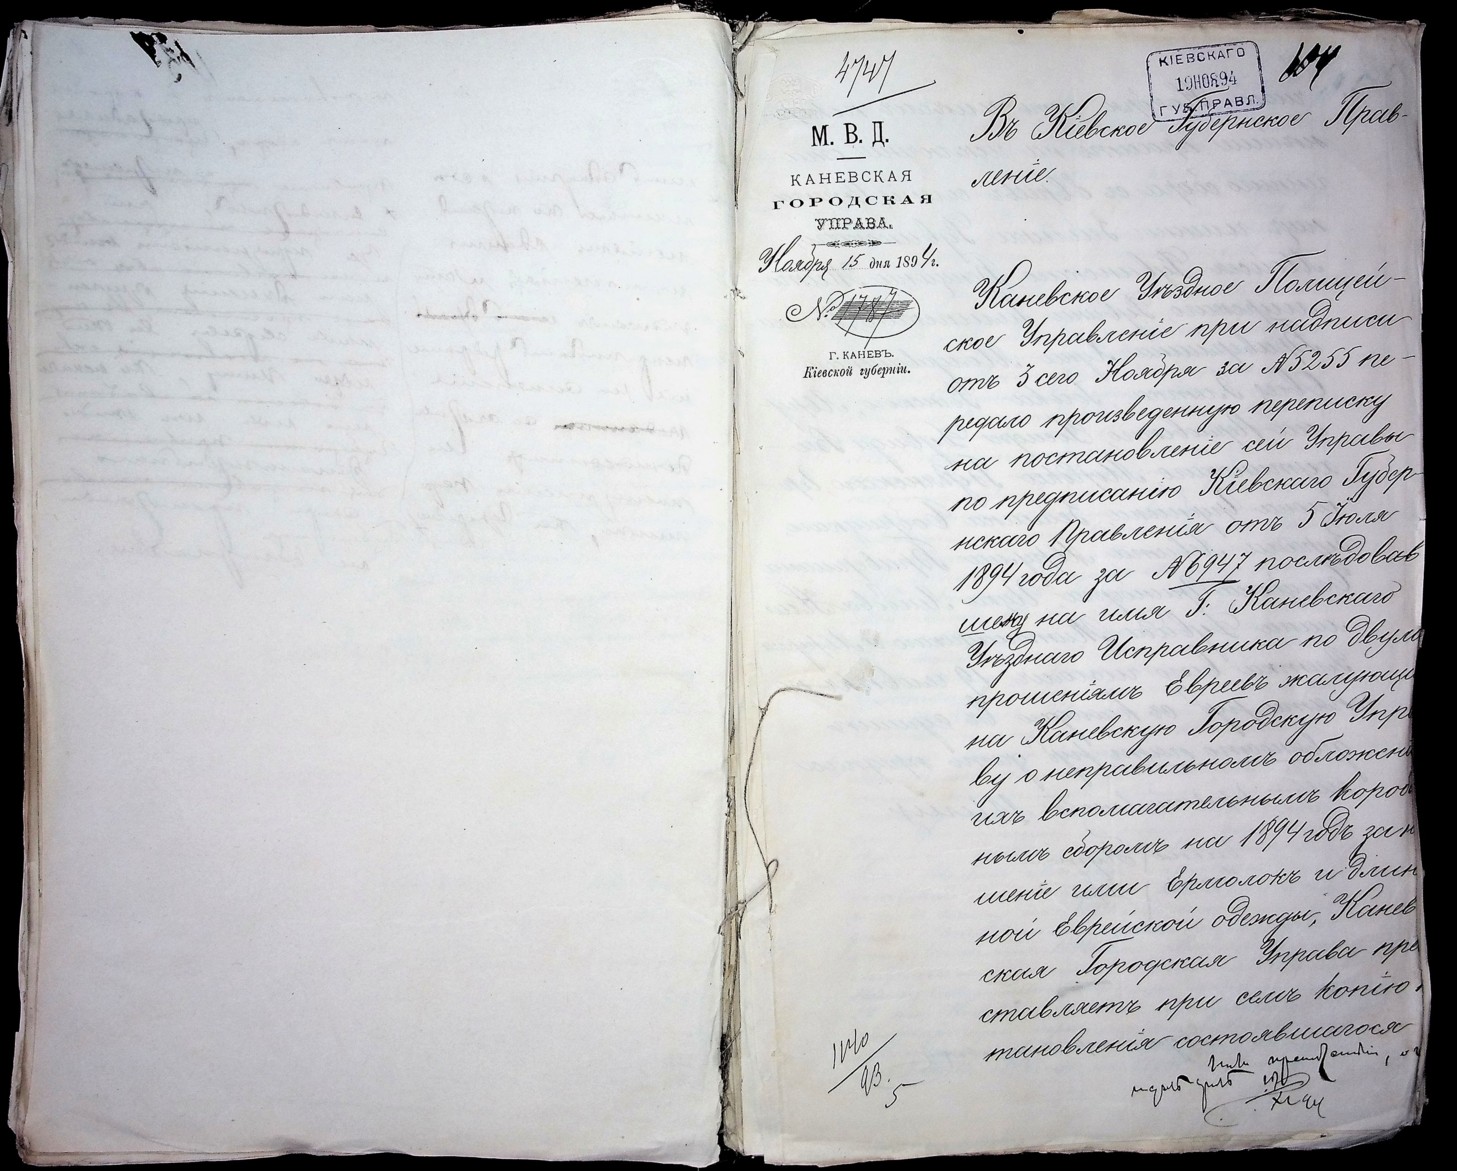 4747
КІЕВСКАГО
19 НОЯ 94
ГУБ. ПРАВЛ.
М. В. Д.
КАНЕВСКАЯ
ГОРОДСКАЯ
УПРАВА.
Ноября 15 дня 1894 г.
№ 1787
Г. КАНЕВЪ.
Кіевской губерніи.
Въ Кіевское Губернское Прав-
леніе.
Каневское Уѣздное Полицей-
ское Управленіе при надписи
отъ 3 сего Ноября за №5255 пе-
редало произведенную переписку
на постановленіе сей Управы
по предписанію Кіевскаго Губер-
нскаго Правленія отъ 5 Іюля
1894 года за №6947 послѣдовав
шему на имя Г: Каневскаго
Уѣзднаго Исправника по двумъ
прошеніямъ Евреевъ жалующи
на Каневскую Городскую Упр
ву о неправильномъ обложені
ихъ вспомагательнымъ короб
нымъ сборомъ на 1894 годъ за н
шеніе ими Ермолокъ и длин
ной Еврейской одежды, Канев
ская Городская Управа пре
ставляетъ при семъ копію
тановленія состоявшагося
1440
93.
5